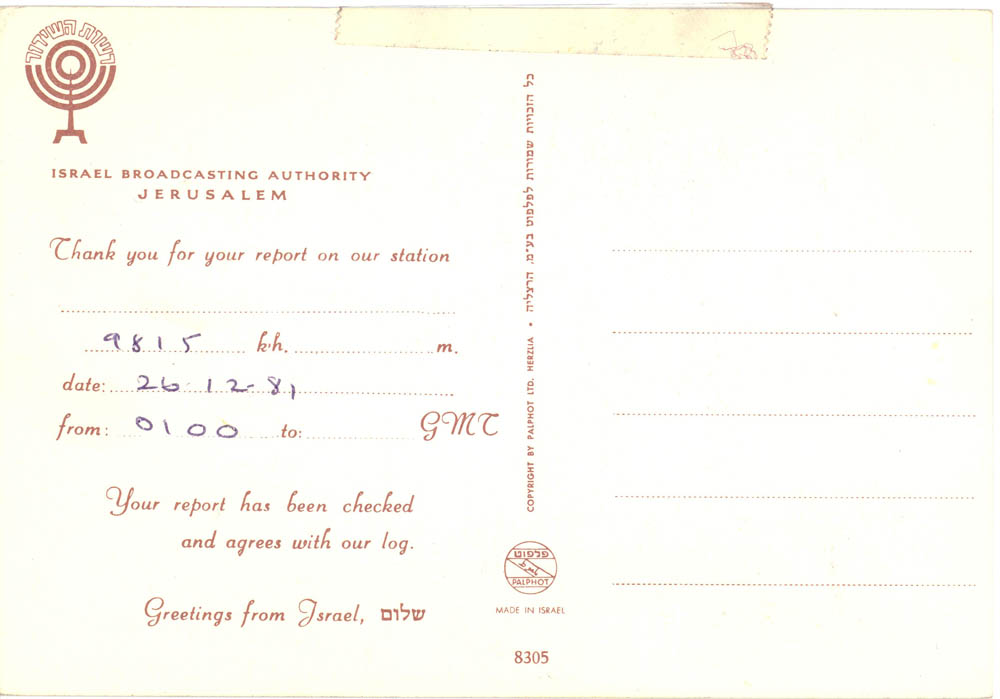 רשות השידור
ISRAEL BROADCASTING AUTHORITY
JERUSALEM
Thank you for your report on our station
9815 k.h. m.
date: 26-12-81
from: 0100 to: GMT
Your report has been checked
and agrees with our log.
Greetings from Israel, שלום
כל הזכויות שמורות לפלפוט בע"מ. הרצליה • COPYRIGHT BY PALPHOT LTD. HERZLIA
פלפוט
PALPHOT
MADE IN ISRAEL
8305